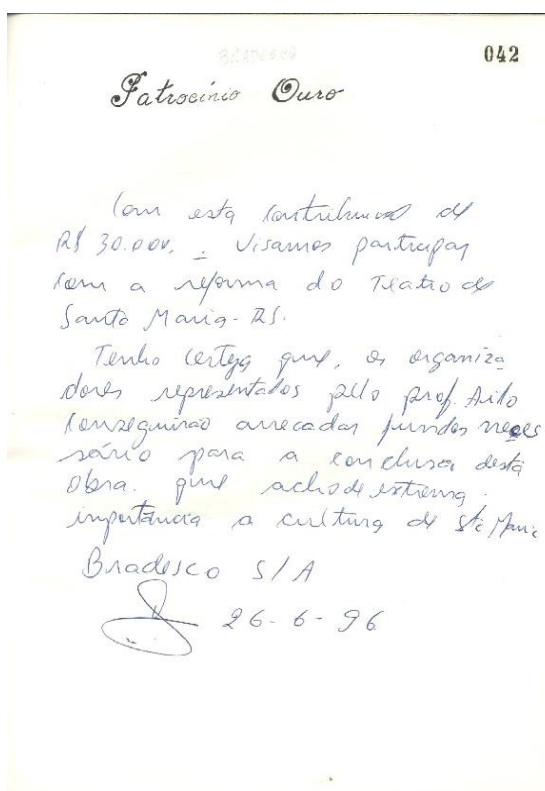 BRADESCO
042
Patrocínio Ouro
Com esta contribuição de
R$ 30.000, = Visamos participar
com a reforma do Teatro de
Santa Maria - RS.
Tenho certeza que, os organiza
dores representados pelo prof. Ailo
conseguirão arrecadar fundos neces
sário para a conclusão desta
obra. que acho de extrema
importância a cultura de Sta Maria
Bradesco S/A
26-6-96